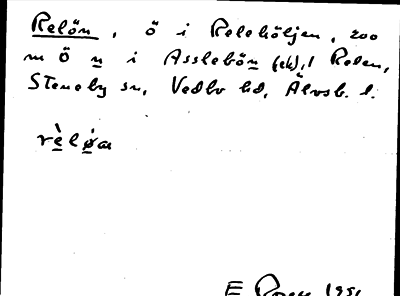 Relön, ö i Relehöljen, 200
m Ö n i Asslebön (ek), i Relen,
Steneby sn, Vedbo hd, Älvsb. l.
rèløn
E Rosen 1951